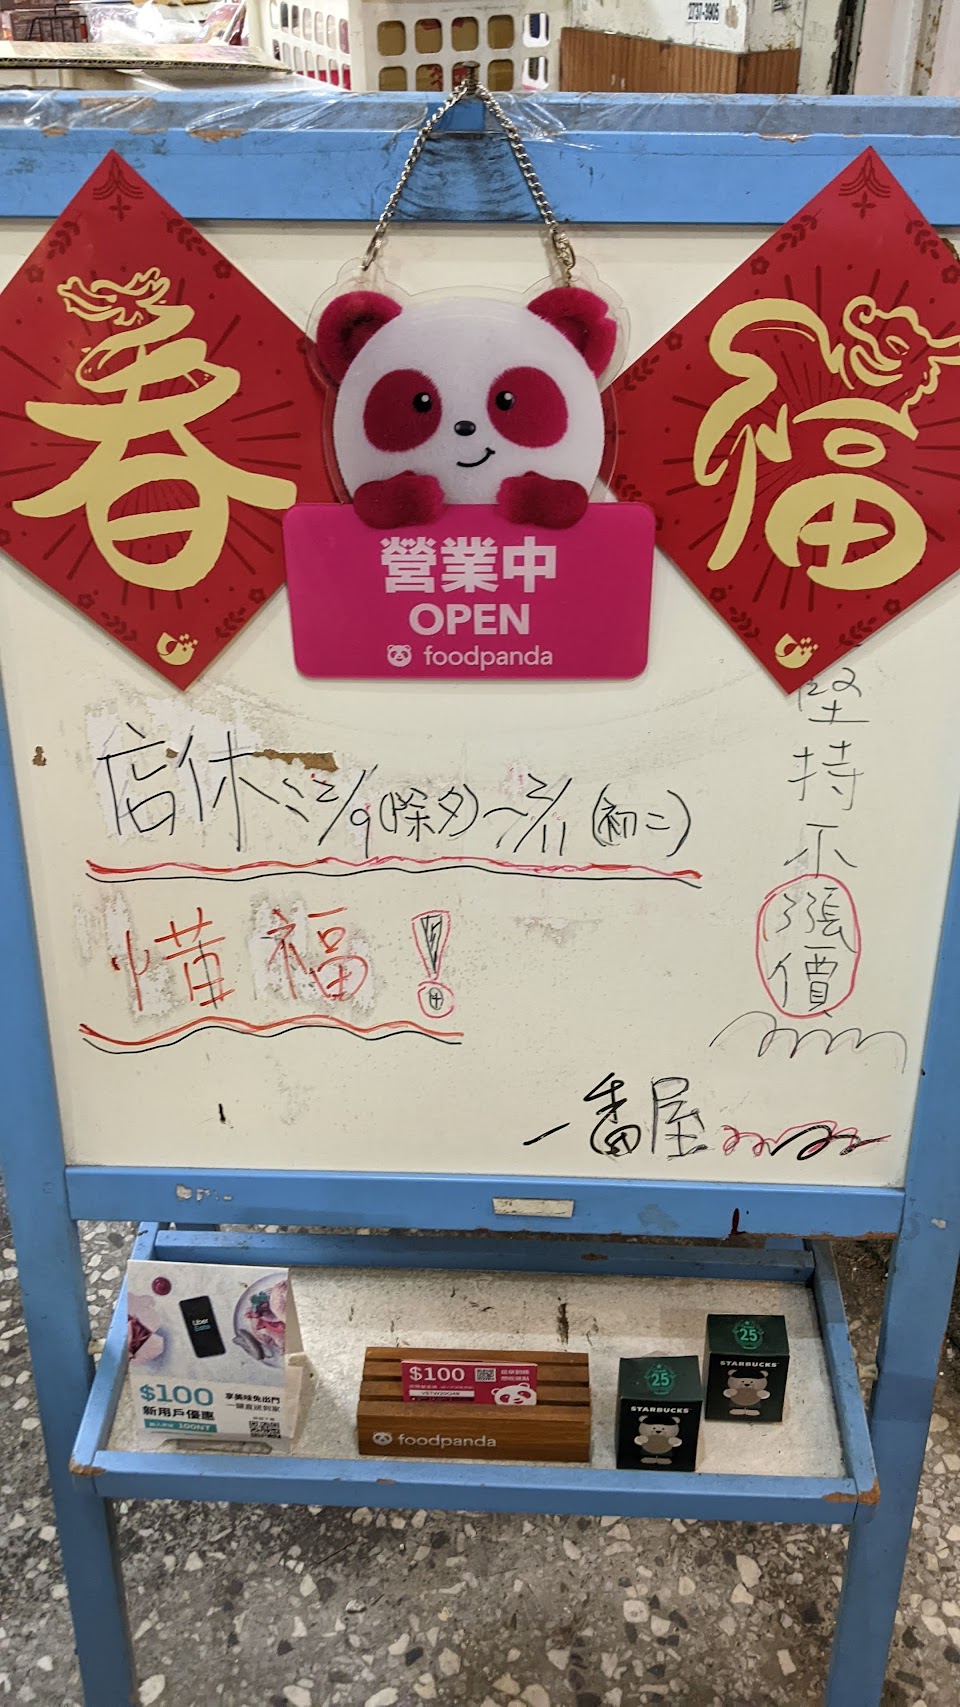 2737-3905
春
福
營業中
OPEN
foodpanda
店休：2/9(除夕)～2/11(初二)
惜福！
堅持不漲價
一番屋
Uber
Eats
$100
新用戶優惠
100NT
享美味免出門
一鍵直送到家
$100
foodpanda
25
STARBUCKS
25
STARBUCKS